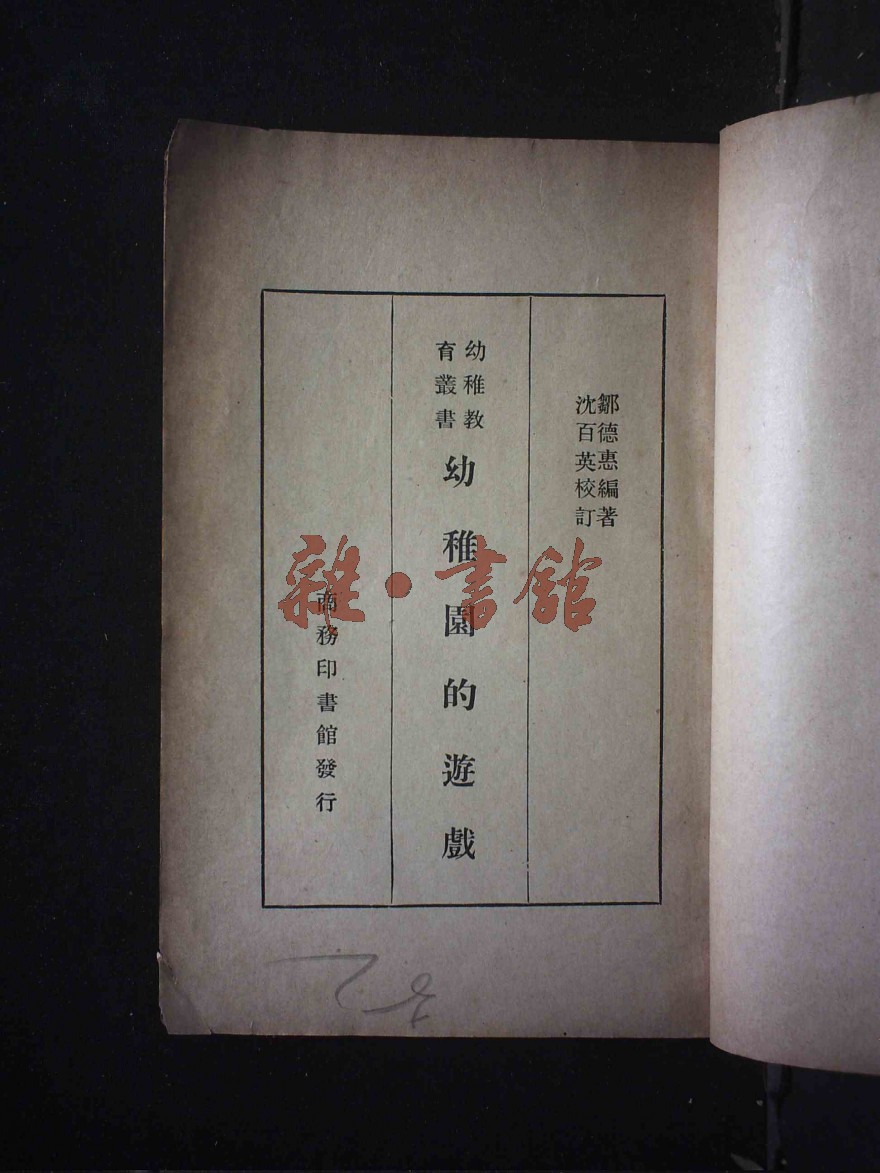 鄒德惠編著
沈百英校訂
幼稚教
育叢書
幼稚園的遊戲
商務印書館發行
雜·書館